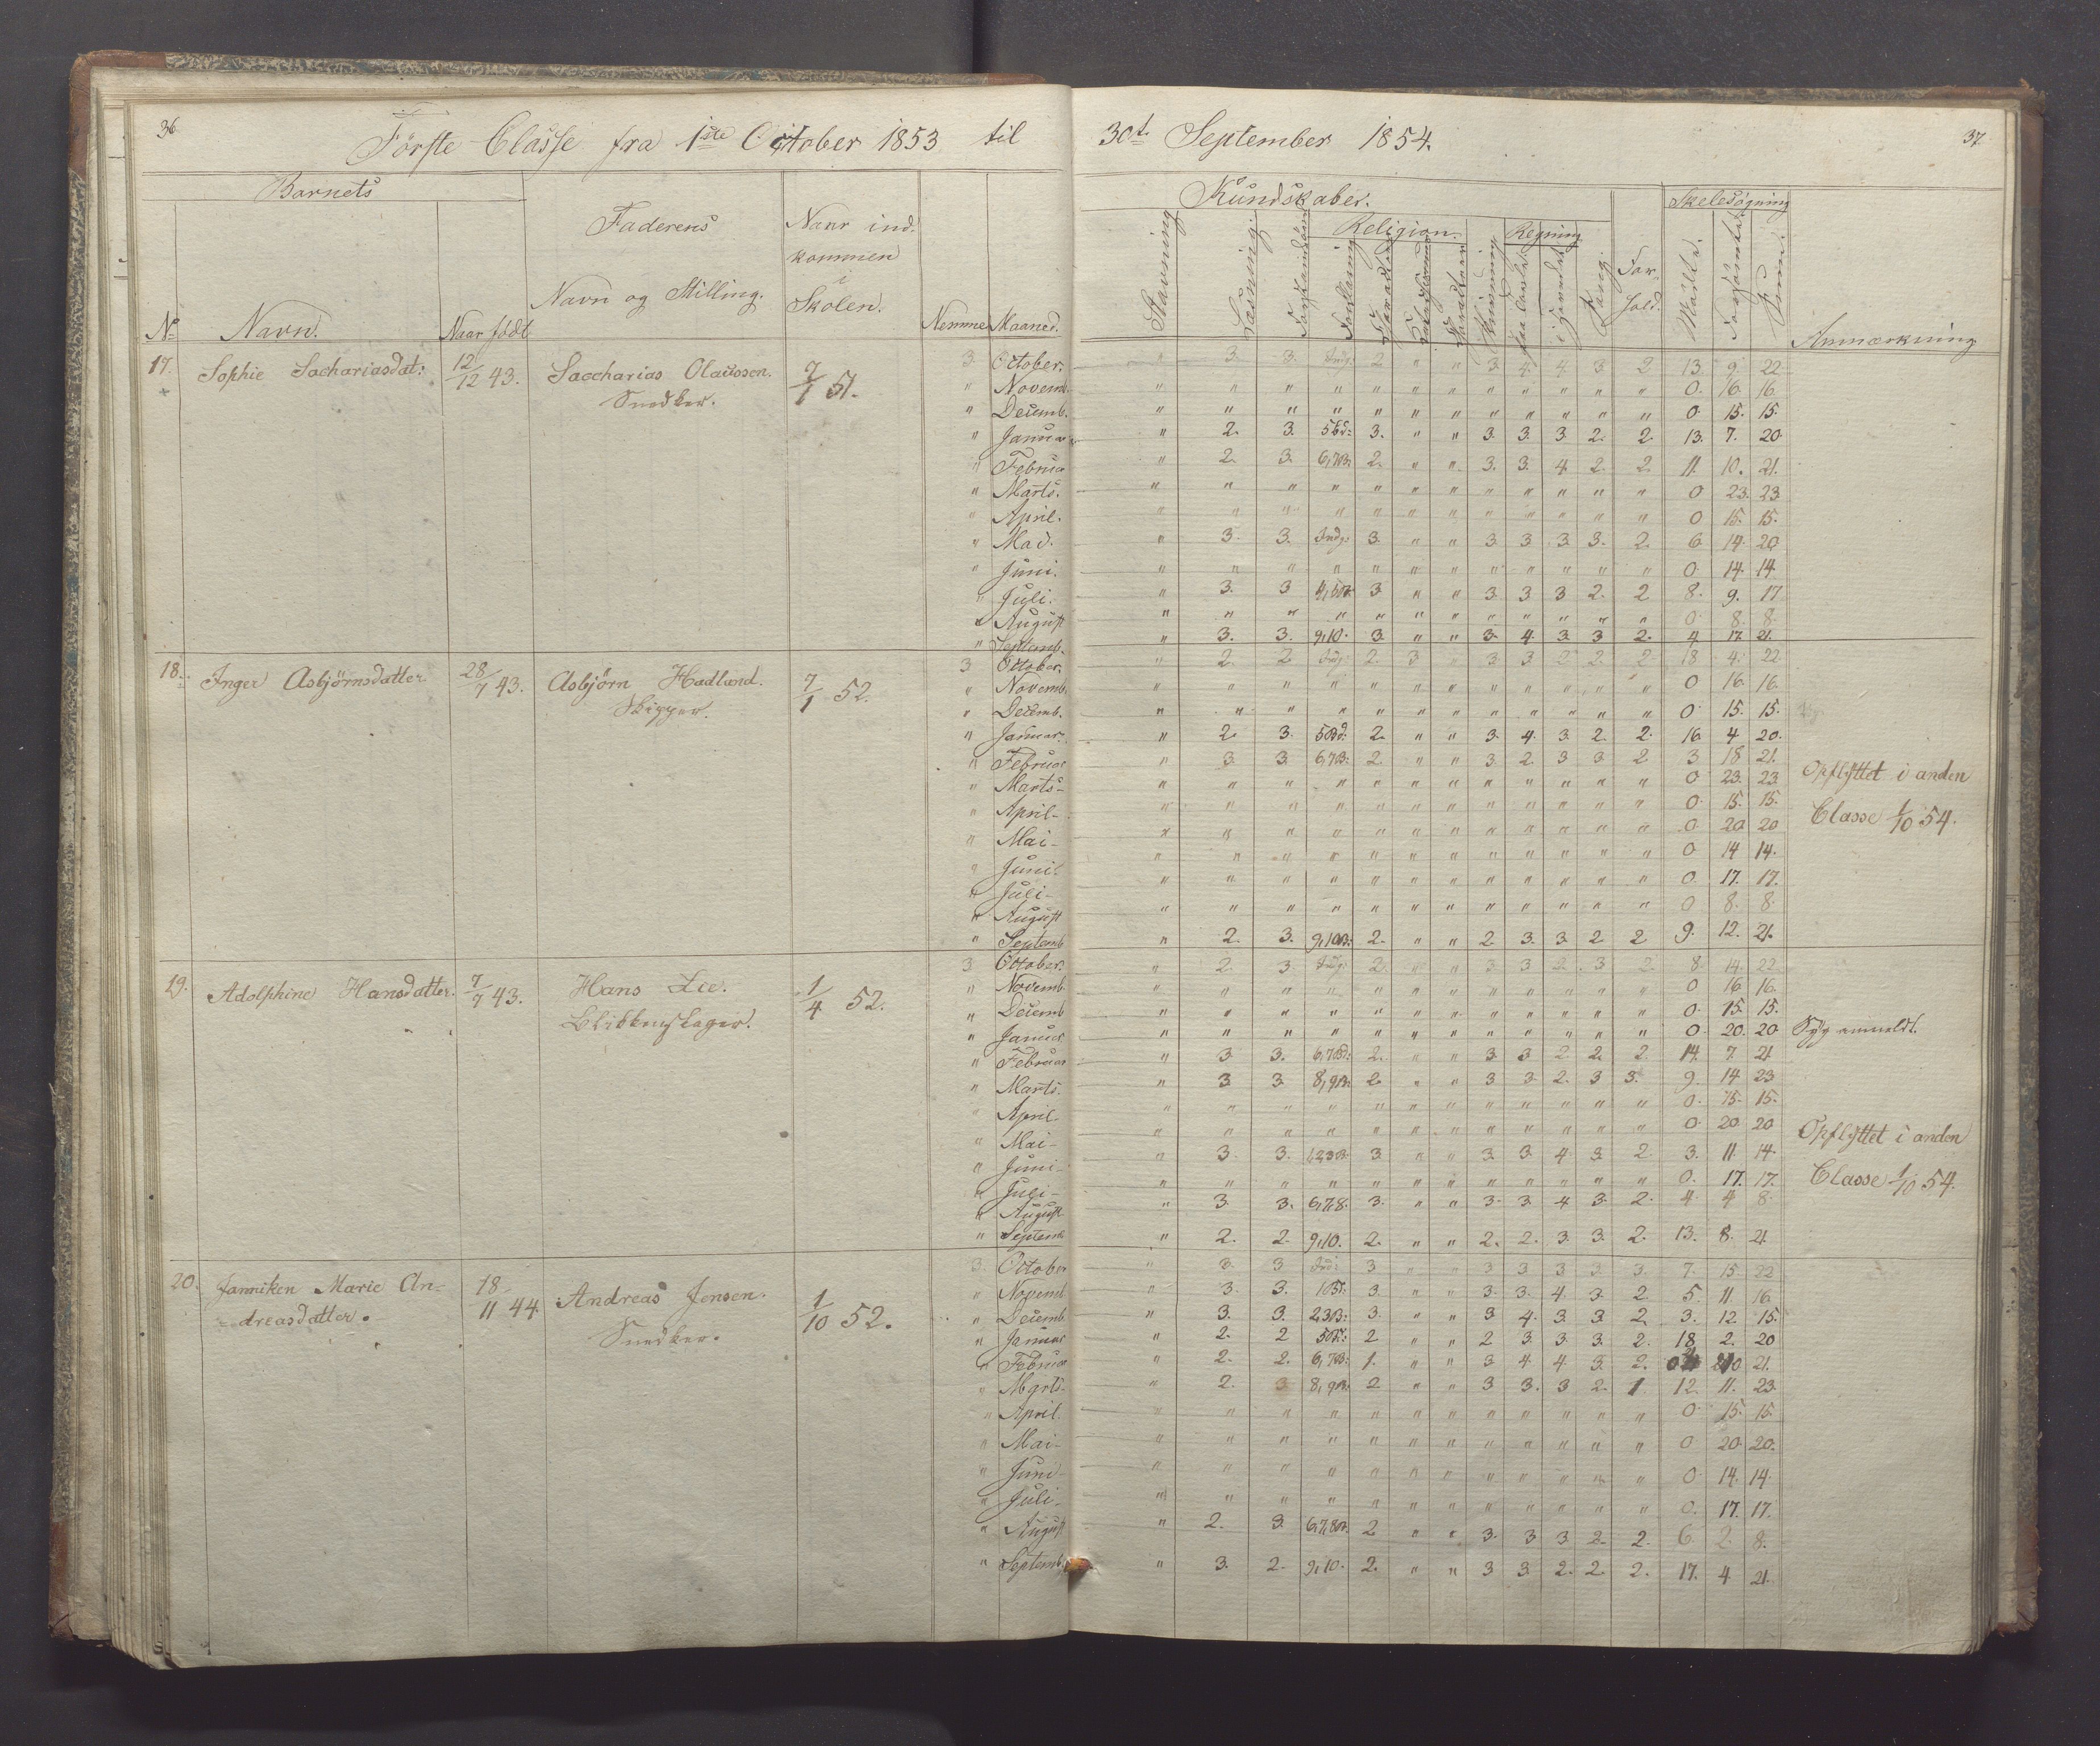 36.
Förste Classe fra 1ste October 1853 til
30t. September 1854.
37
Barnets
Faderens
Naar ind-
kommen
i
Skolen.
Navn og Stilling.
No Navn. Naar född
Nemme Maaned.
Kundskaber.
Stavning
Læsning.
Religion.
Regning
Sang.
For-
hold.
Skolesögning
Mödte.
Forsömte
Sum.
Anmærkning
17. Sophie Sachariasdat: 12/12 43. Saccharias Olaussen. 7/1 51. 3. October. " 3. 3. Indg. 2 " " 3. 4. 4. 3. 2. 13. 9. 22
Snedker.
" Novemb. " " " " " " " " " " " " 0. 16. 16.
" Decemb. " " " " " " " " " " " " 0. 15. 15.
" Januar " 2. 3. 5Bd: 3. " " 3. 3. 3. 2. 2. 13. 7. 20.
" Februar " 2. 3. 6,7B: 2. " " 3. 3. 4. 2. 2. 11. 10. 21.
" Marts. " " " " " " " " " " " " 0 23. 23
" April. " " " " " " " " " " " " 0 15. 15.
" Mai. " 3. 3. Indg: 3. " " 3. 3 3. 3. 2. 6. 14. 20
" Juni. " " " " " " " " " " " " 0. 14. 14.
" Juli. " 3. 3 3 " " 3. 3 3 2. 2 8. 9. 17
" August " " " " " " " " " " " " 0. 8. 8.
" Septemb. " 3. 3. 9,10. 3. " " 3. 4. 3. 3 2. 4 17. 21.
18. Inger Asbjörnsdatter 28/7 43. Asbjörn Hadland. 7/1 52. 3 October. " 2. 2 Indg: 2. 3 3 3 2 2. 2. 18 4. 22.
Skipper.
" Novemb. " " " " " " " " " " " " 0 16. 16.
" Decemb. " " " " " " " " " " " " 0 15. 15.
" Januar. " 2. 3. 5Bd: 2. " " 3. 4. 3. 2. 2. 16. 4 20.
" Februar " 3. 3. 6,7B: 2. " " 3 2. 3 3 2 3 18 21.
" Marts- " " " " " " " " " " " " 0 23. 23.
Opflyttet i anden
" April- " " " " " " " " " " " " 0. 15. 15.
Classe 1/10 54.
" Mai- " " " " " " " " " " " " 0 20. 20
" Juni. " " " " " " " " " " " " 0 14 14.
" Juli- " " " " " " " " " " " " 0. 17. 17.
" August " " " " " " " " " " " " 0 8. 8
" Septemb " 2. 3. 9,10B: 2. " " 2 3. 3. 2 2 9. 12. 21.
19. Adolphine Hansdatter. 7/7 43. Hans Lie. 1/4 52. 3 October. " 2. 3 Indg: 2. " " 3 3 2. 3 2. 8. 14. 22
Blikkenslager.
" Novemb " " " " " " " " " " " " 0 16 16.
" Decemb " " " " " " " " " " " " 0. 15. 15.
" Januar " " " " " " " " " " " " 0. 20. 20 Syg anmeldt.
" Februar " 3 3. 6,7Bd: 2. " " 3. 3 2 2. 2. 14. 7. 21
" Marts. " 3 3. 8,9B: 2 " " 3 3. 2. 3 3. 9. 14 23
" April " " " " " " " " " " " " 0. 15. 15.
" Mai- " " " " " " " " " " " " 0. 20. 20
Opflyttet i anden
" Juni- " 3. 3. 1,2,3B: 3 " " 3. 3. 4. 3. 2 3. 11. 14.
Classe 1/10 54.
" Juli- " " " " " " " " " " " " 0. 17. 17.
" August " 3 3. 6,7,8. 3. " " 3. 3. 4 3. 2. 4. 4 8.
" Septemb " 2. 2. 9,10. 2. " " 2. 2. 3. 3. 2. 13. 8. 21
20. Janniken Marie An- 18/11 44. Andreas Jensen. 1/10 52. 3. October " 3. 3 Indg: 3 " " 3 3 3 3. 3. 7. 15. 22
-dreasdatter.
Snedker.
" Novemb " 3. 3. 3. " " 3. 3. 4. 3. 2 5. 11. 16.
" Decemb. " 3. 3. 2,3B: 3. " " 3 4. 3. 3 2. 3. 12. 15.
" Januar " 2. 2 5Bd: 2 " " 2 3 3. 3. 2. 18. 2. 20
" Februar " 2. 2. 6,7B: 1. " " 3 4 4 3. 2. 21.
" Marts- " 2. 3 8,9B: 2 " " 3 3. 3 2. 1. 12. 11. 23.
" April. " " " " " " " " " " " " 0 15. 15.
" Mai- " " " " " " " " " " " " 0 20. 20.
" Juni- " " " " " " " " " " " " 0. 14. 14.
" Juli- " " " " " " " " " " " " 0. 17. 17.
" August " 2. 3. 6,7,8B: 2 " " 3. 3 3 2. 2. 6. 2. 8.
" Septemb. " 3. 2. 9,10. 2. " " 3 3. 2. 2. 2. 17. 4 21.